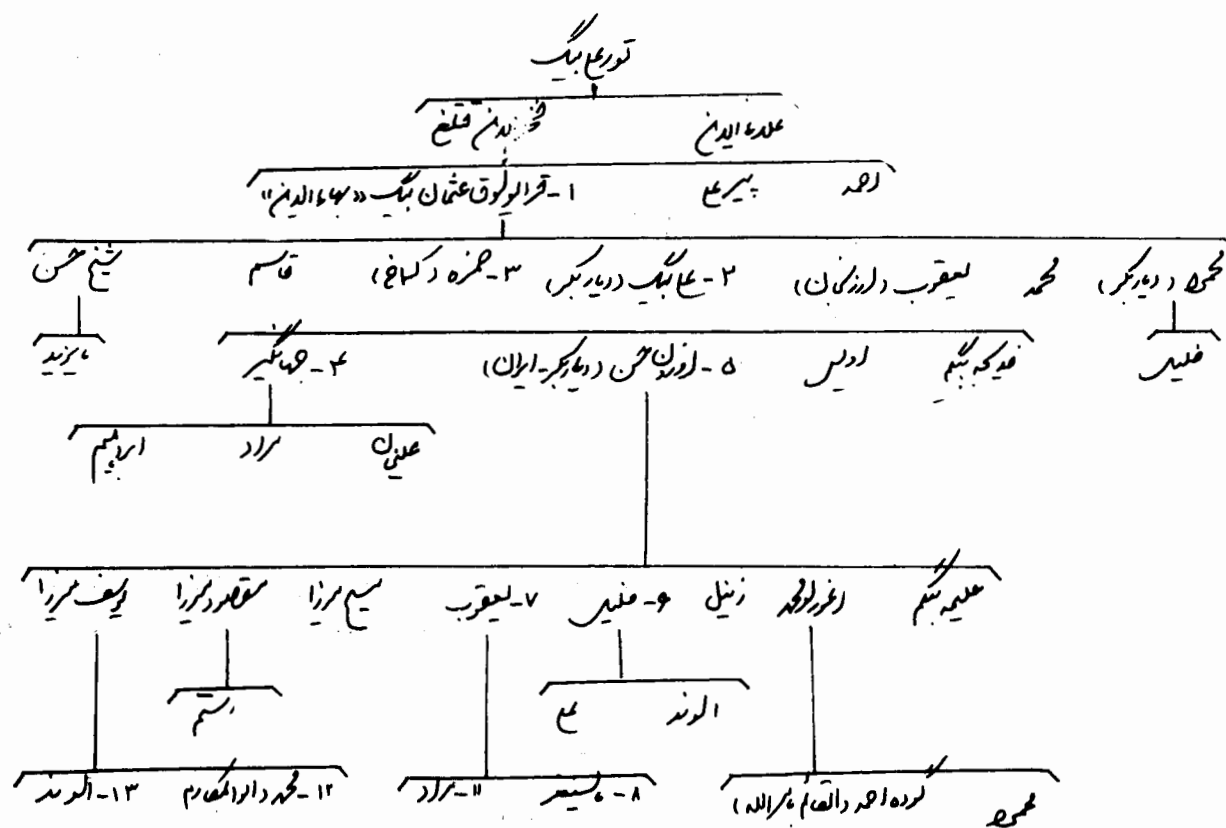 تورعلی بیگ
علاءالدین فخرالدین قتلغ
احمد پیرعلی ۱-قرایولوق عثمان بیگ «بهاءالدین»
محمود (دیاربکر) محمد یعقوب (ارزنجان) ۲-علی بیگ (دیاربکر) ۳-حمزه (کماخ) قاسم شیخ حسن
خلیل خدیجه بیگم اویس ۵-اوزون حسن (دیاربکر-ایران) ۴-جهانگیر بایزید
علیخان مراد ابراهیم
حلیمه بیگم اغورلومحمد زینل ۶-خلیل ۷-یعقوب مسیح میرزا مقصود میرزا یوسف میرزا
الوند علی رستم
محمود گوده احمد (القائم بامرالله) ۸-بایسنقر ۱۱-مراد ۱۲-محمد (ابوالمکارم) ۱۳-الوند